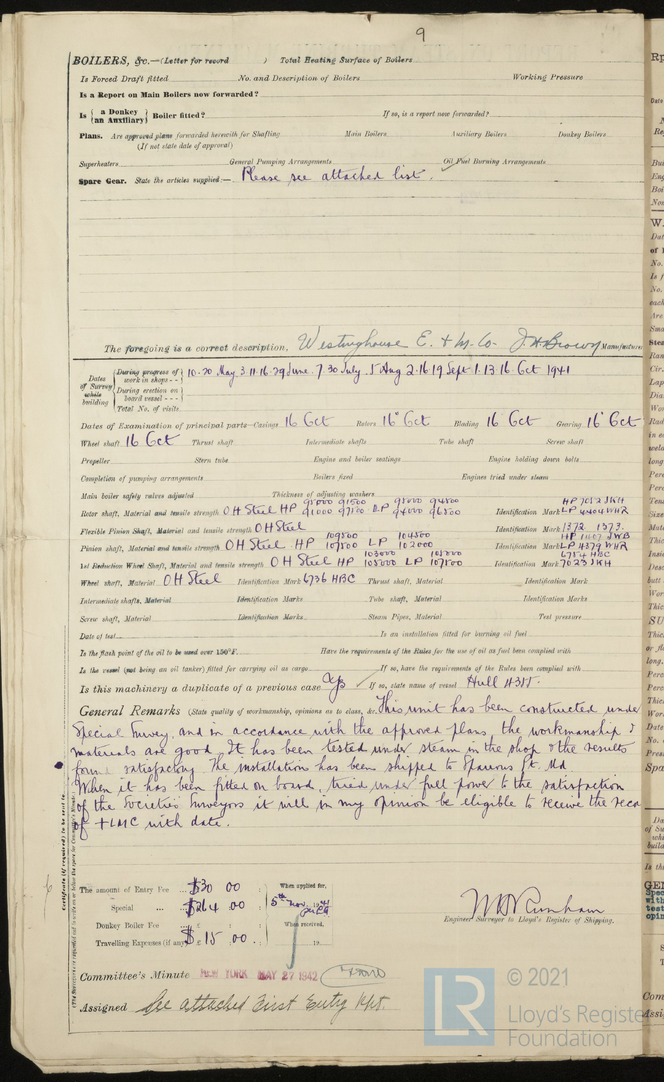 9
BOILERS, &c.—(Letter for record ) Total Heating Surface of Boilers
Is Forced Draft fitted No. and Description of Boilers Working Pressure
Is a Report on Main Boilers now forwarded?
Is { a Donkey / an Auxiliary } Boiler fitted? If so, is a report now forwarded?
Plans. Are approved plans forwarded herewith for Shafting Main Boilers Auxiliary Boilers Donkey Boilers
(If not state date of approval)
Superheaters General Pumping Arrangements Oil Fuel Burning Arrangements
Spare Gear. State the articles supplied:— Please see attached list.
The foregoing is a correct description, Westinghouse E. & M. Co. Manufacturer
Dates of Survey while building
During progress of work in shops - - 10. 20 May 3. 11. 16. 29 June. 7. 30 July. 1 Aug 2. 16. 19 Sept 1. 13 16. Oct 1941
During erection on board vessel - - -
Total No. of visits
Dates of Examination of principal parts—Casings 16 Oct Rotors 16 Oct Blading 16 Oct Gearing 16 Oct
Wheel shaft 16 Oct Thrust shaft Intermediate shafts Tube shaft Screw shaft
Propeller Stern tube Engine and boiler seatings Engine holding down bolts
Completion of pumping arrangements Boilers fixed Engines tried under steam
Main boiler safety valves adjusted Thickness of adjusting washers
Rotor shaft, Material and tensile strength OH Steel HP LP Identification Mark HP 7052 JKH LP 4404 WHR
Flexible Pinion Shaft, Material and tensile strength OH Steel Identification Mark 1372 1373.
Pinion shaft, Material and tensile strength OH Steel HP 109500 107500 LP 104500 102000 Identification Mark LP 4379 WHR
1st Reduction Wheel Shaft, Material and tensile strength OH Steel HP 103000 105000 LP 107500 Identification Mark 6754 HBC 7023 JKH
Wheel shaft, Material OH Steel Identification Mark 6736 HBC Thrust shaft, Material Identification Mark
Intermediate shafts, Material Identification Marks Tube shaft, Material Identification Marks
Screw shaft, Material Identification Marks Steam Pipes, Material Test pressure
Date of test Is an installation fitted for burning oil fuel
Is the flash point of the oil to be used over 150°F. Have the requirements of the Rules for the use of oil as fuel been complied with
Is the vessel (not being an oil tanker) fitted for carrying oil as cargo If so, have the requirements of the Rules been complied with
Is this machinery a duplicate of a previous case Yes If so, state name of vessel Hull
General Remarks (State quality of workmanship, opinions as to class, &c. This unit has been constructed under
Special Survey, and in accordance with the approved plans, the workmanship &
materials are good. It has been tested under steam in the shop & the results
found satisfactory. The installation has been shipped to Sparrows Pt. Md
When it has been fitted on board, tried under full power to the satisfaction
of the Societies Surveyors it will in my opinion be eligible to receive the
of + LMC with date.
The amount of Entry Fee $30 00 When applied for,
Special $264 00 5th Nov. 1941
Donkey Boiler Fee When received,
Travelling Expenses (if any) $ 15 00 19
Engineer Surveyor to Lloyd's Register of Shipping.
Committee's Minute NEW YORK MAY 27 1942
Assigned See attached First Entry Rpt.
LR © 2021
Lloyd's Register
Foundation